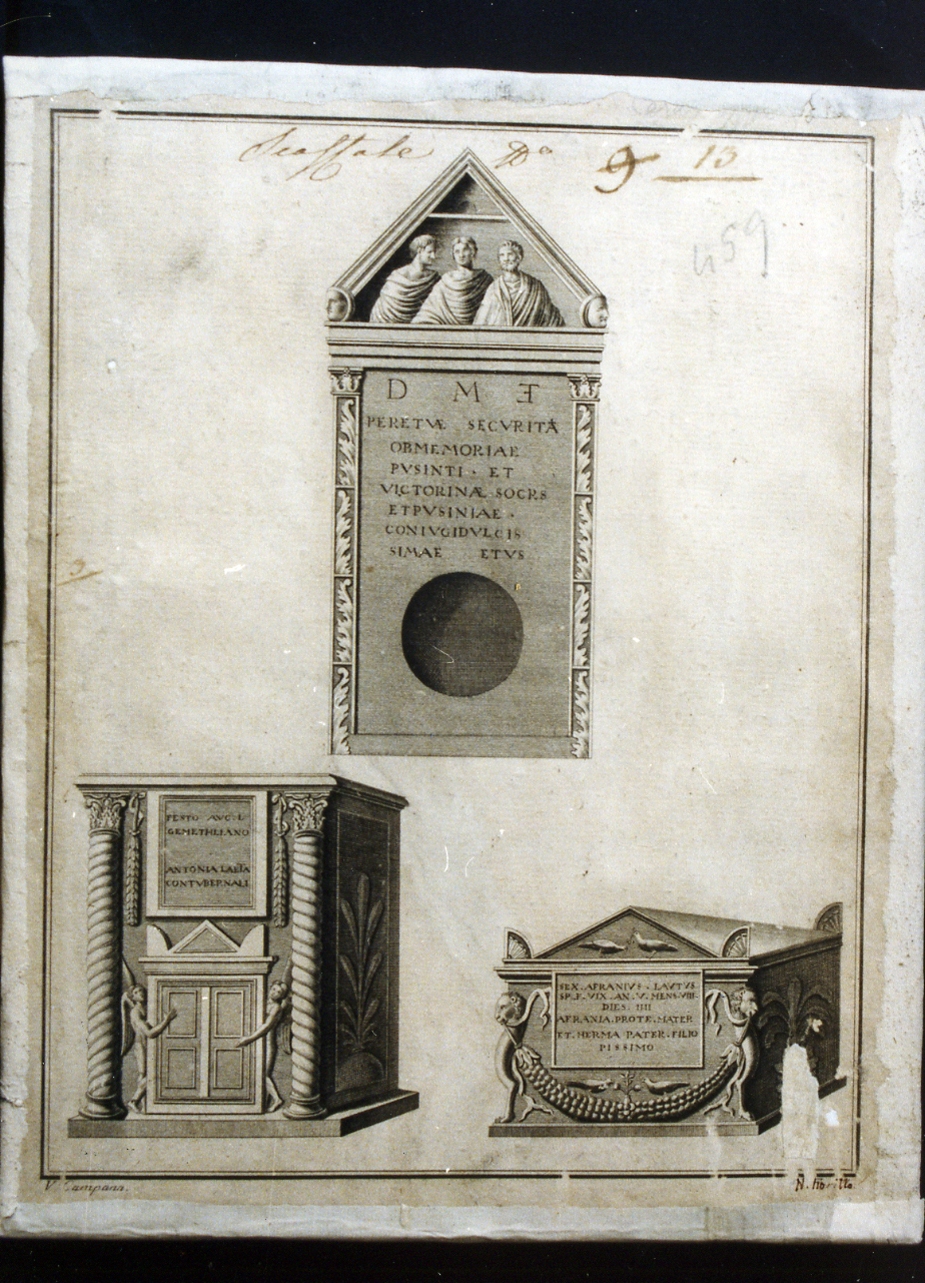 Scaffale Do 9 13
459
D M Ǝ
PERETVÆ SECVRITA
OBMEMORIAE
PVSINTI · ET
VICTORINÆ SOCRS
ETPVSINIAE ·
CONIVGIDVLCIS
SIMAE ETVS
FESTO AVG·L
GEMETHLIANO
ANTONIA LAETA
CONTVBERNALI
SEX · AFRANIVS · LAVTVS
SP·F· VIX · AN · V · MENS·VIII·
DIES · IIII
AFRANIA · PROTE · MATER
ET · HERMA PATER · FILIO
PISSIMO
V. Campana.